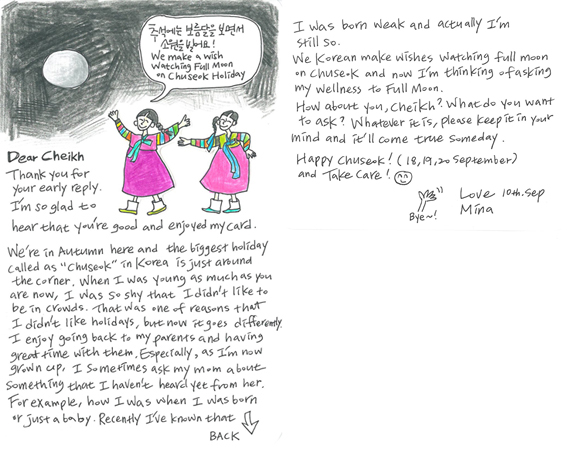 추석에는 보름달을 보면서
소원을 빌어요!
We make a wish
Watching Full Moon
on Chuseok Holiday
Dear Cheikh
Thank you for
your early reply.
I'm so glad to
hear that you're good and enjoyed my card.
We're in Autumn here and the biggest holiday
called as "Chuseok" in Korea is just around
the corner. When I was young as much as you
are now, I was so shy that I didn't like to
be in crowds. That was one of reasons that
I didn't like holidays, but now it goes differently.
I enjoy going back to my parents and having
great time with them. Especially, as I'm now
grown up, I sometimes ask my mom about
something that I haven't heard yet from her.
For example, how I was when I was born
or just a baby. Recently I've known that
BACK
I was born weak and actually I'm
still so.
We Korean make wishes watching full moon
on Chuseok and now I'm thinking of asking
my wellness to Full Moon.
How about you, Cheikh? What do you want
to ask? Whatever it is, please keep it in your
mind and it'll come true someday.
Happy Chuseok! (18, 19, 20 September)
and Take Care!
Bye~!
Love 10th. Sep
Mina